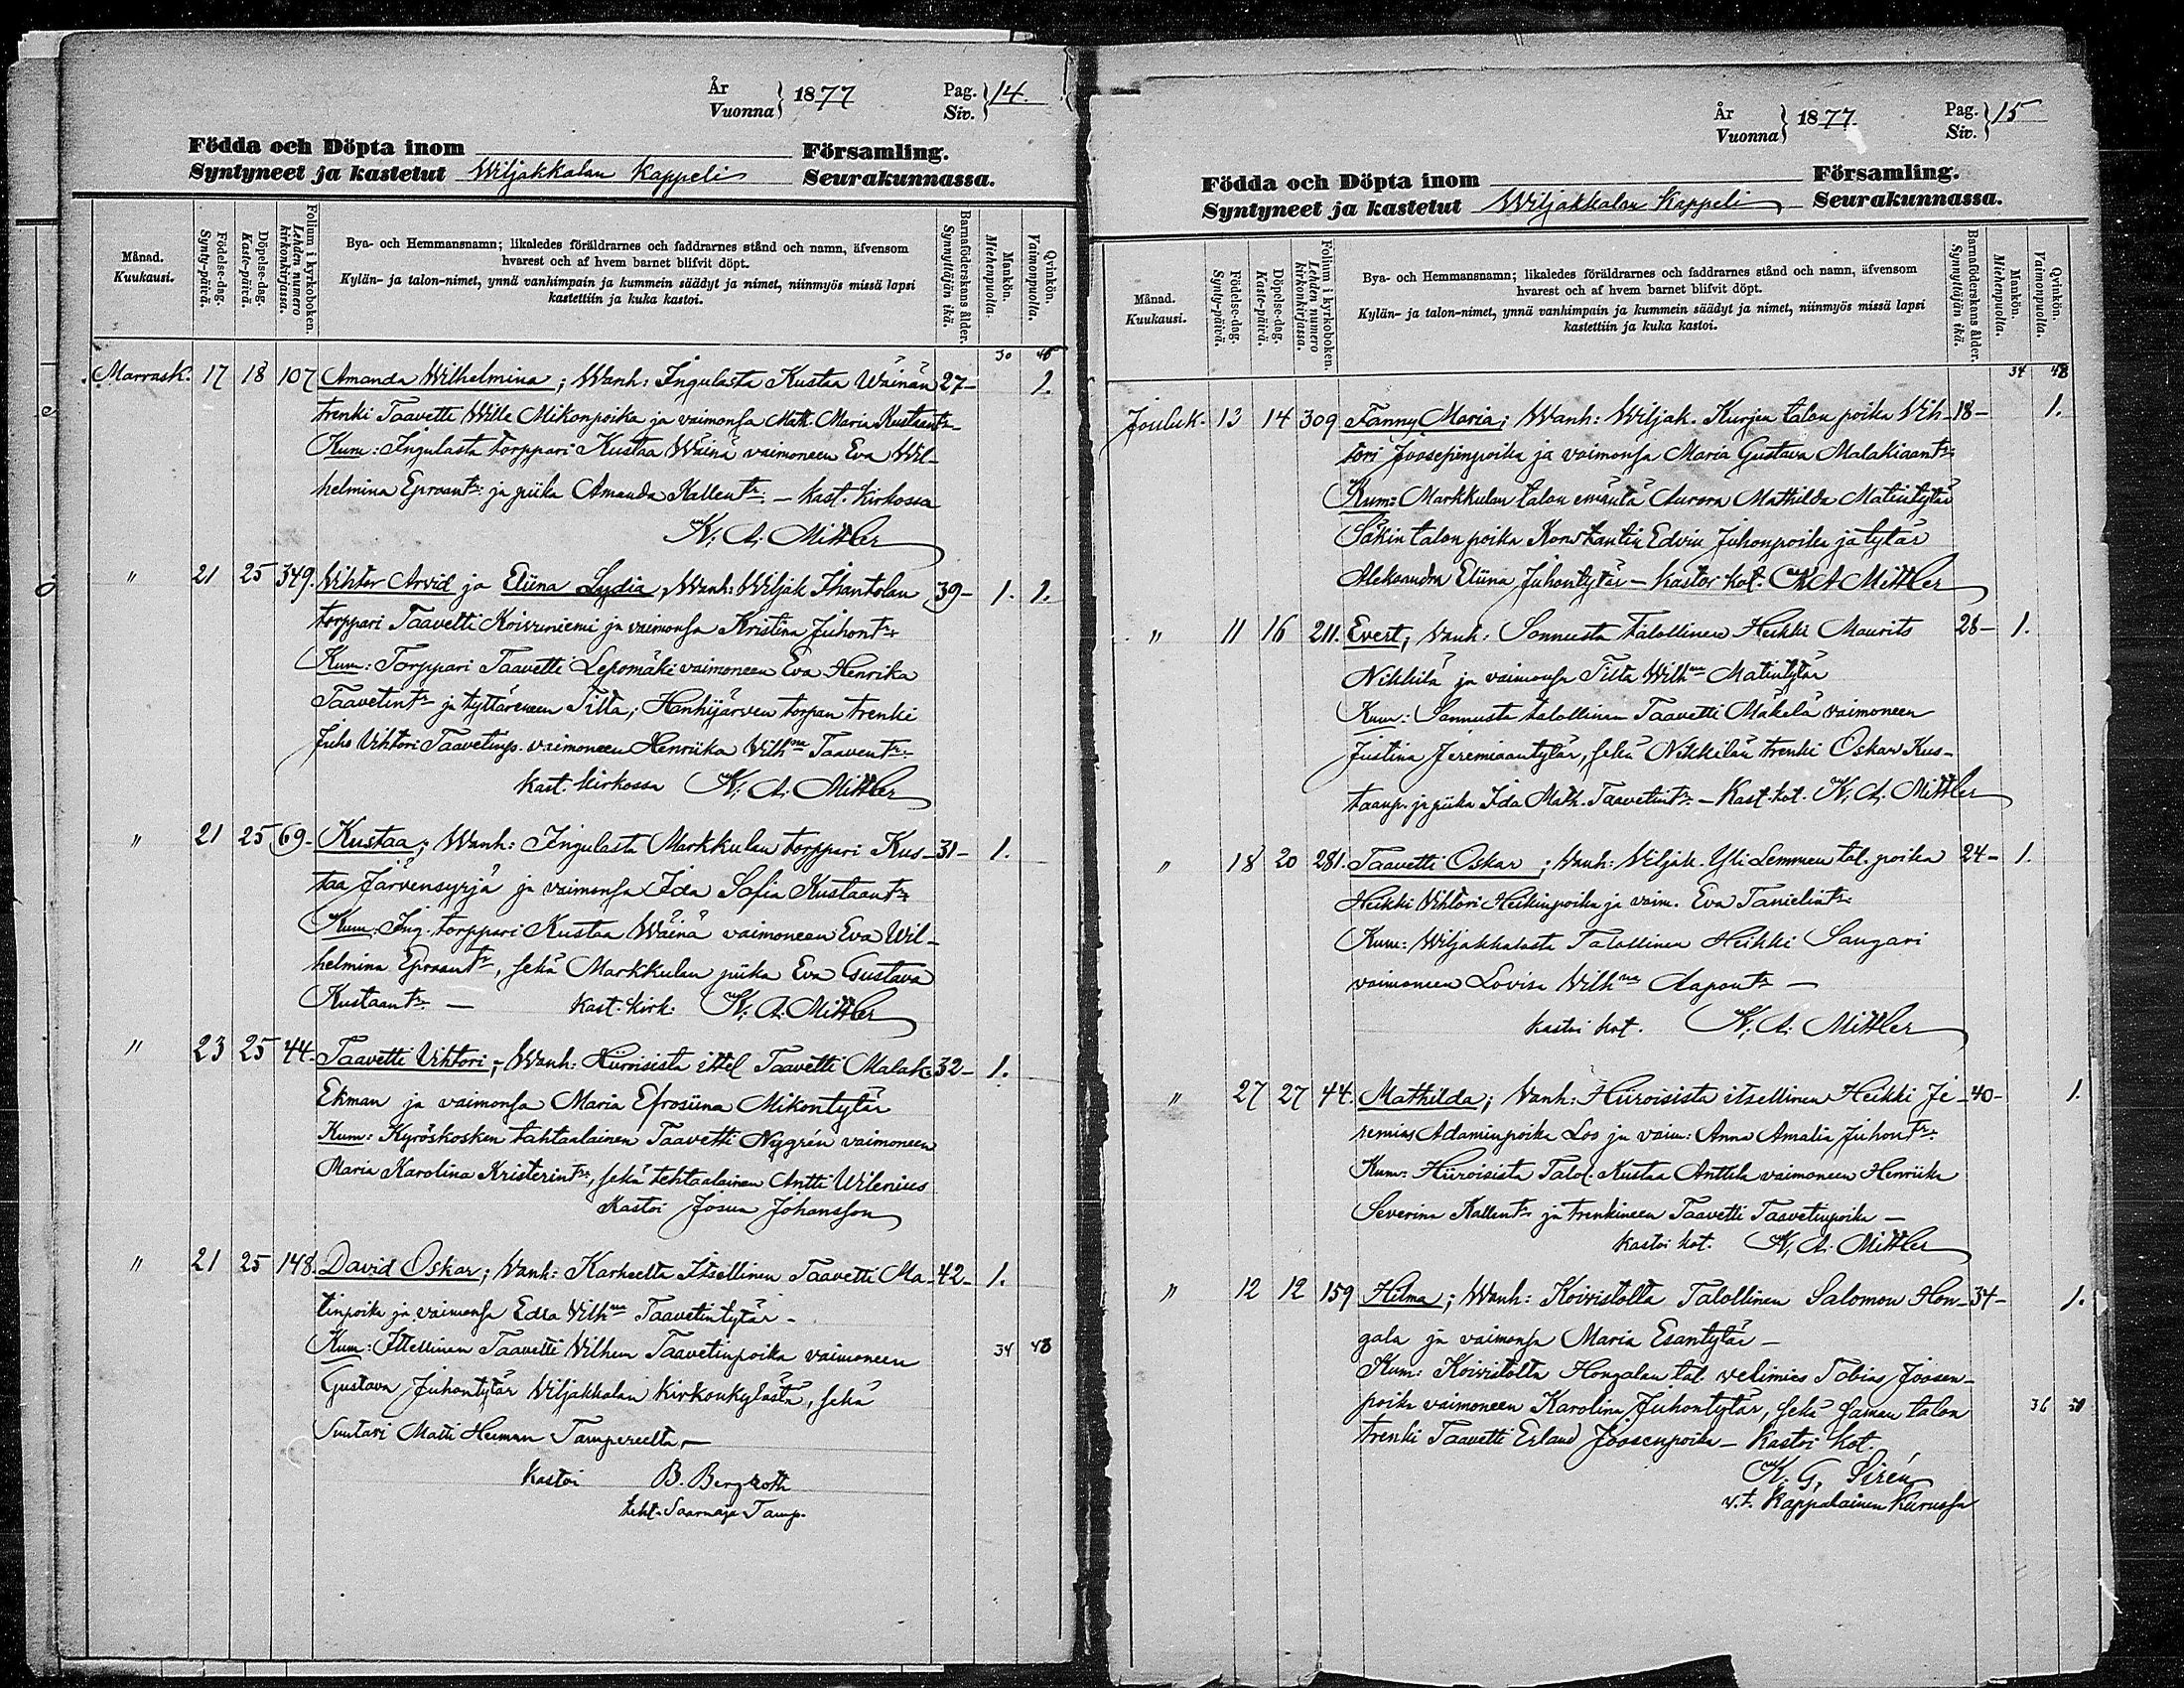 År
Vuonna } 1877 Pag.
Siv. } 14.
Födda och Döpta inom Församling.
Syntyneet ja kastetut Wiljakkalan Kappeli Seurakunnassa.
Månad.
Kuukausi.
Födelse-dag.
Synty-päivä.
Döpelse-dag.
Kaste-päivä.
Folium i kyrkoboken.
Lehden numero
kirkonkirjassa.
Bya- och Hemmansnamn; likaledes föräldrarnes och faddrarnes stånd och namn, äfvensom
hvarest och af hvem barnet blifvit döpt.
Kylän- ja talon-nimet, ynnä vanhimpain ja kummein säädyt ja nimet, niinmyös missä lapsi
kastettiin ja kuka kastoi.
Barnaföderskans ålder.
Synnyttäjän ikä.
Mankön.
Miehenpuolia.
Qvinkön.
Vaimonpuolia.
30
Marrask. 17 18 107 Amanda Wilhelmina; Wanh: Ingulasta Kustaa Wäinän 27- 1.
trenki Taavetti Wille Mikonpoika ja vaimonsa Math. Maria Kustaantr.
Kum: Ingulasta torppari Kustaa Wäinä vaimoneen Eva Wil-
helmina Eproantr: ja piika Amanda Kallentr. - Kast. kirkossa
K. A. Mittler
" 21 25 349. Wihtor Arvid ja Eliina Lydia, Wanh: Wiljak. Ihantolan 39- 1. 1.
torppari Taavetti Koivuniemi ja vaimonsa Kristina Juhontr.
Kum: Torppari Taavetti Lepomäki vaimoneen Eva Henrika
Taavetintr ja tyttäreneen Titta; Hanhijärven torpan trenki
Juho Vihtori Taavetinp. vaimoneen Henriika Wilhna Taaventr.
Kast. kirkossa K. A. Mittler
" 21 25 69- Kustaa; Wanh: Ingulasta Markkulan torppari Kus- 31- 1.
taa Järvensyrjä ja vaimonsa Ida Sofia Kustaantr.
Kum: Ing. torppari Kustaa Wäinä vaimoneen Eva Wil-
helmina Eproantr, sekä Markkulan piika Eva Gustava
Kustaantr. - Kast. kirk. K. A. Mittler
" 23 25 44- Taavetti Vihtori; Wanh: Hiiroisista ittel Taavetti Malak. 32- 1.
Ekman ja vaimonsa Maria Efrosiina Mikontytär
Kum: Kyröskosken tahtaalainen Taavetti Nygrén vaimoneen
Maria Karolina Kristerintr., sekä tehtaalainen Antti Wilenius
Kastoi Josua Johansson
" 21 25 148. David Oskar; Wanh: Karheelta Itsellinen Taavetti Ma- 42- 1.
tinpoika ja vaimonsa Edla Wilhna Taavetintytär -
Kum: Ittellinen Taavetti Wilhem Taavetinpoika vaimoneen 34 48
Gustava Juhontytär Wiljakkalan Kirkonkylästä, sekä
Suutari Matti Heiman Tampereelta -
Kastoi B. Bergroth
teht. Saarnaja Tamp.
År
Vuonna } 1877 Pag.
Siv. } 15
Födda och Döpta inom Församling.
Syntyneet ja kastetut Wiljakkalan Kappeli Seurakunnassa.
Månad.
Kuukausi.
Födelse-dag.
Synty-päivä.
Döpelse-dag.
Kaste-päivä.
Folium i kyrkoboken.
Lehden numero
kirkonkirjassa.
Bya- och Hemmansnamn; likaledes föräldrarnes och faddrarnes stånd och namn, äfvensom
hvarest och af hvem barnet blifvit döpt.
Kylän- ja talon-nimet, ynnä vanhimpain ja kummein säädyt ja nimet, niinmyös missä lapsi
kastettiin ja kuka kastoi.
Barnaföderskans ålder.
Synnyttäjän ikä.
Mankön.
Miehenpuolia.
Qvinkön.
Vaimonpuolia.
34 48
Jouluk. 13 14 309 Fanny Maria; Wanh: Wiljak. Kurjen talon poika Vih- 18- 1.
tori Joosepinpoika ja vaimonsa Maria Gustava Malakiaantr.
Kum: Markkulan talon emäntä Aurora Mathilda Matintytär
Säkin talon poika Konstantin Edvin Juhonpoika ja tytär
Aleksandra Eliina Juhontytär - kastoi kot. K A Mittler
" 11 16 211. Evert; Vanh: Sonnusta talollinen Heikki Maurits 28- 1.
Nikkilä ja vaimonsa Tilta Wilhna Matintytär
Kum: Sannusta talollinen Taavetti Mäkelä vaimoneen
Justina Jeremiaantytär, sekä Nikkilän trenki Oskar Kus-
taanp. ja piika Ida Math. Taavetintr. - Kast. kot. K. A. Mittler
" 18 20 281. Taavetti Oskar; Vanh: Viljak. Yli Lemmen tal. poika 24- 1.
Heikki Vihtori Heikinpoika ja vaim. Eva Tanielintr.
Kum: Wiljakkalasta Talollinen Heikki Saugari
vaimoneen Lovisa Wilhna Aapontr -
kastoi kot. K. A. Mittler
" 27 27 44. Mathilda; Vanh: Hiiroisista itsellinen Heikki Je- 40- 1.
remias Adaminpoika Los ja vaim: Anna Amalia Juhontr.
Kum: Hiiroisista Talol. Kustaa Anttila vaimoneen Henriika
Severina Kallentr ja trenkineen Taavetti Taavetinpoika -
kastoi kot. K. A. Mittler
" 12 12 159 Hilma; Wanh: Koivistolta Talollinen Salomon Hon- 34- 1.
gala ja vaimonsa Maria Esantytär -
Kum: Koivistolta Hongalan tal. velimies Tobias Joosen-
poika vaimoneen Karolina Juhontytär, sekä samen talon 36
trenki Taavetti Erland Joosenpoika - Kastoi kot.
K. G. Sirén
v.t. Kappalainen Kurussa